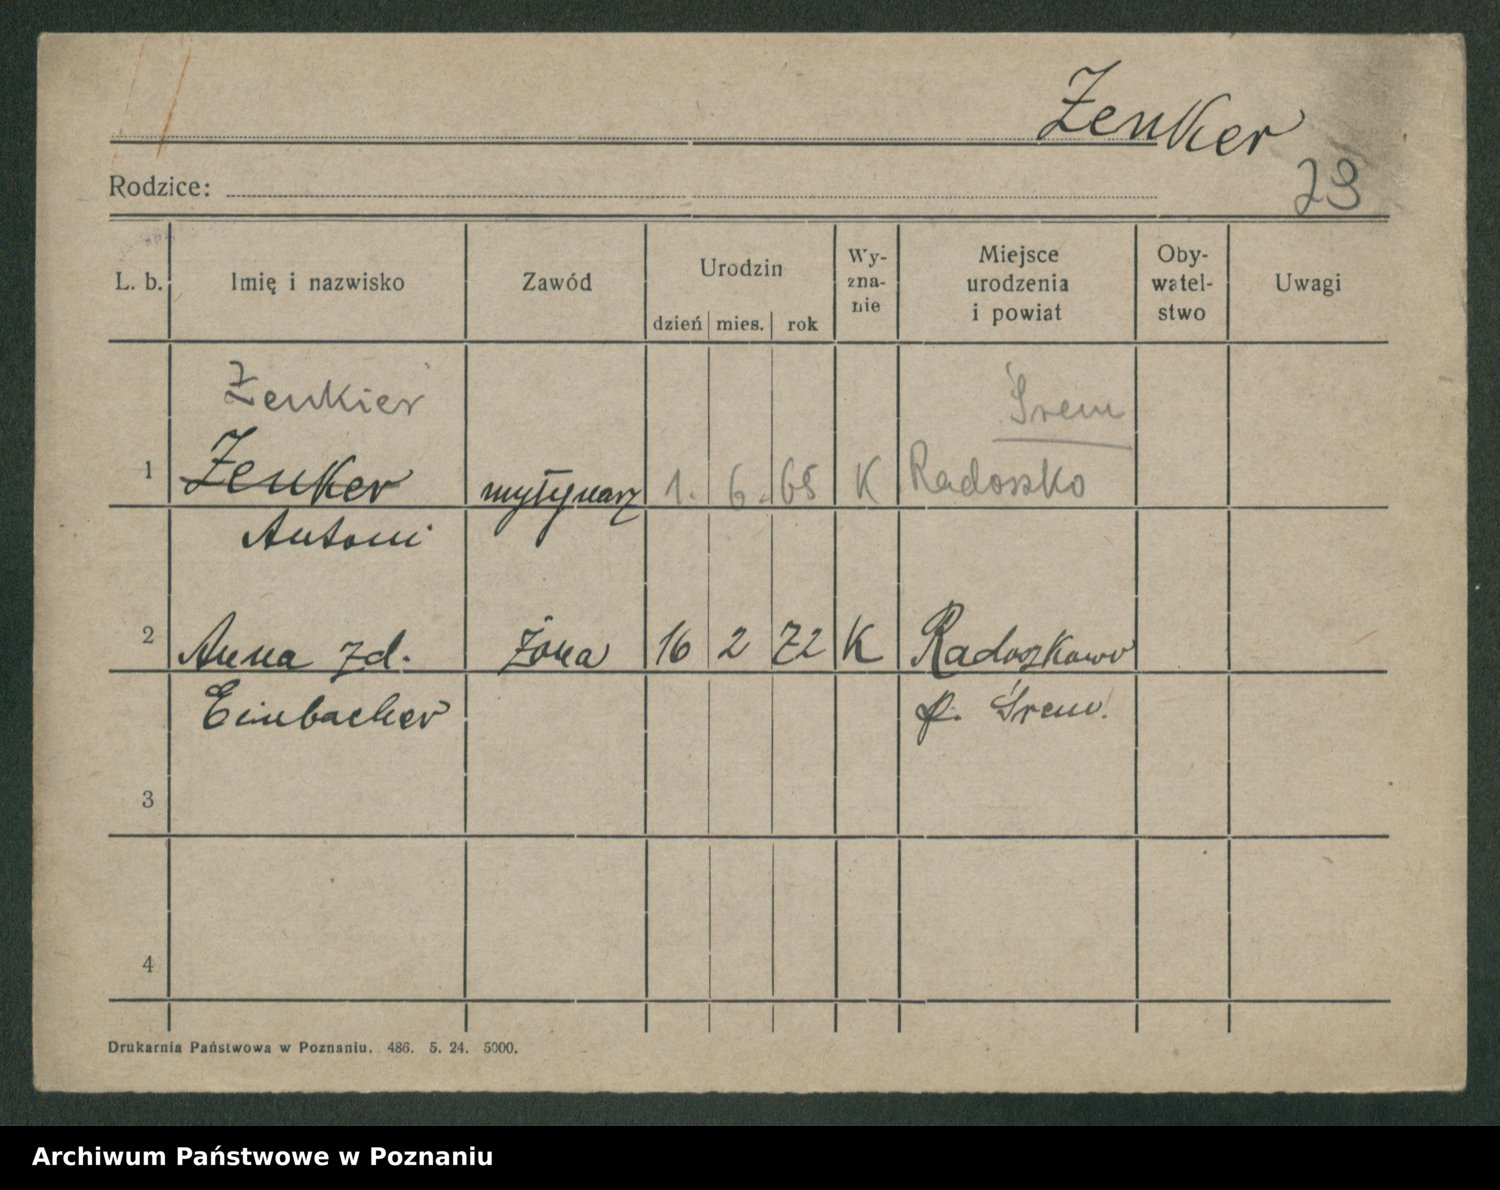 Zenker
29
Rodzice:
L. b. Imię i nazwisko Zawód Urodzin dzień mies. rok Wy-zna-nie Miejsce urodzenia i powiat Oby-watel-stwo Uwagi
Żenkier Śrem
1 Zenker 1. 6. 65 K Radoszko
Antoni
2 Anna zd. żona 16 2 72 K Radoszkowo
Einbacher p. Śrem.
3
4
Drukarnia Państwowa w Poznaniu. 486. 5. 24. 5000.
Archiwum Państwowe w Poznaniu